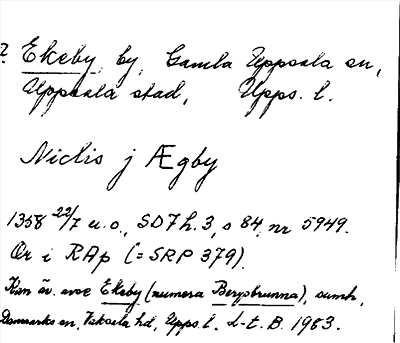 ? Ekeby, by, Gamla Uppsala sn,
Uppsala stad, Upps. l.
Niclis j Ægby
1358 22/7 u.o., SD 7 h. 3, s 84, nr 5949.
Or i RAp (= SRP 379).
Kan äv. avse Ekeby (numera Bergsbrunna), sumh,
Danmarks sn, Vaksala hd, Upps. l. L-t. B. 1983.